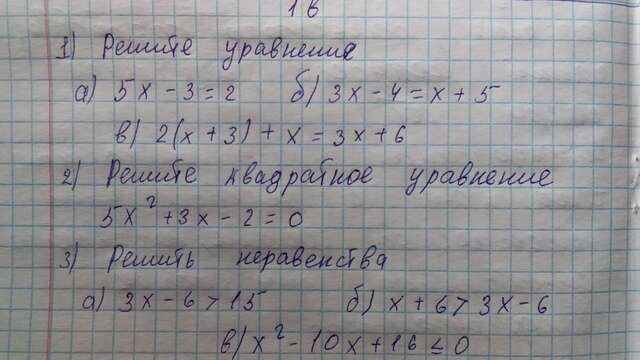 1 в
1) Решите уравнение
а) 5x - 3 = 2 б) 3x - 4 = x + 5
в) 2(x + 3) + x = 3x + 6
2) Решите квадратное уравнение
5x² + 3x - 2 = 0
3) Решить неравенства
а) 3x - 6 > 15 б) x + 6 > 3x - 6
в) x² - 10x + 16 ≤ 0